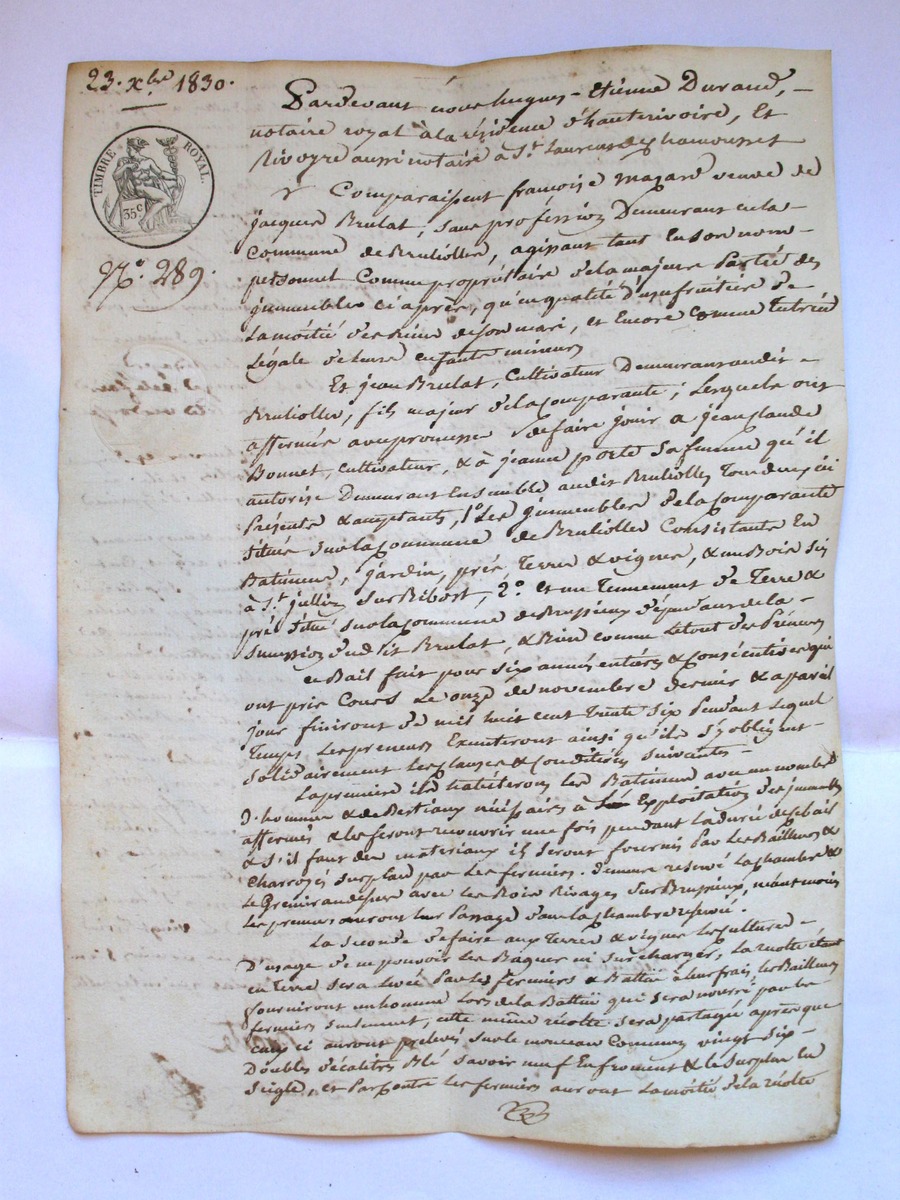 23. xbre 1830.
TIMBRE ROYAL.
35c
No. 289.
Pardevant nous hugues-Etienne Durand,
notaire royal à la résidence d'hauterivoire, Et
Rivoyre aussi notaire à St. Laurent de Chamousset
Comparaissent françoise mazard veuve de
jacques Brulat, sans profession Demeurant en la
Commune de Brulioles, agissant tant En son nom
personnel Comme propriétaire de la majeure Partie des
jmmeubles ci après, qu'en qualité d'usufruitière de
La moitié des Biens de son mari, et Encore Comme Tutrice
Légale de leurs enfants mineurs
Et jean Brulat, Cultivateur Demeurant audit
Brulioles, fils majeur de la Comparante; Lesquels ont
affermé avec promesse de faire jouir a jean claude
Bonnet, cultivateur, & à jeanne porte sa femme qu'il
autorise Demeurant Ensemble audit Brulioles Tous deux ici
Présents & acceptants, 1o. Les jmmeubles de la Comparante
situés sur la Commune de Brulioles Consistants En
Batiments, jardin, prés, Terres & vignes, & un Bois sis
à St. jullien sur Bibost, 2o. et un Tennement de Terre &
pré situé sur la Commune de Brussieux dépendant de la
succession dudit Brulat, & Bien comme le tout des Preneurs
ce Bail fait pour six années entières & consécutives qui
ont pris Cours Le onze de novembre dernier & a pareil
jour finiront de mil huit cent Trente six Pendant Lequel
Temps, Les preneurs Exécuteront ainsi qu'ils s'y obligent
solidairement Les charges & Conditions suivantes
La première ils habiteront les Batiments avec un nombre
d'hommes & de Bestiaux nécessaires à Exploitation des jmmeubles
affermés & les feront recouvrir une fois pendant la durée de ce bail
& s'il faut des materiaux ils seront fournis Par Les Bailleurs &
Charroyés sur place par les fermiers. Demeure réservé La chambre &
le Grenier au dessus avec les Bois Rivages sur Brussieux, néantmoins
Les preneurs auront leur Passage dans la chambre réservée.
La seconde de faire aux Terres & vignes les cultures
D'usage de ne pouvoir les ni surcharger, La récolte étant
en Terre sera levée Par les fermiers & Battue à leur frais, les Bailleurs
fourniront un homme Lors de la Battue qui sera nourri par les
fermiers seulement, cette même récolte sera partagée après que
ceux ci auront prélevés sur le monceau Commun vingt six
Doubles décalitres Blé savoir neuf En froment & le surplus En
Seigle, et Par contre Les fermiers auront La moitié de la récolte